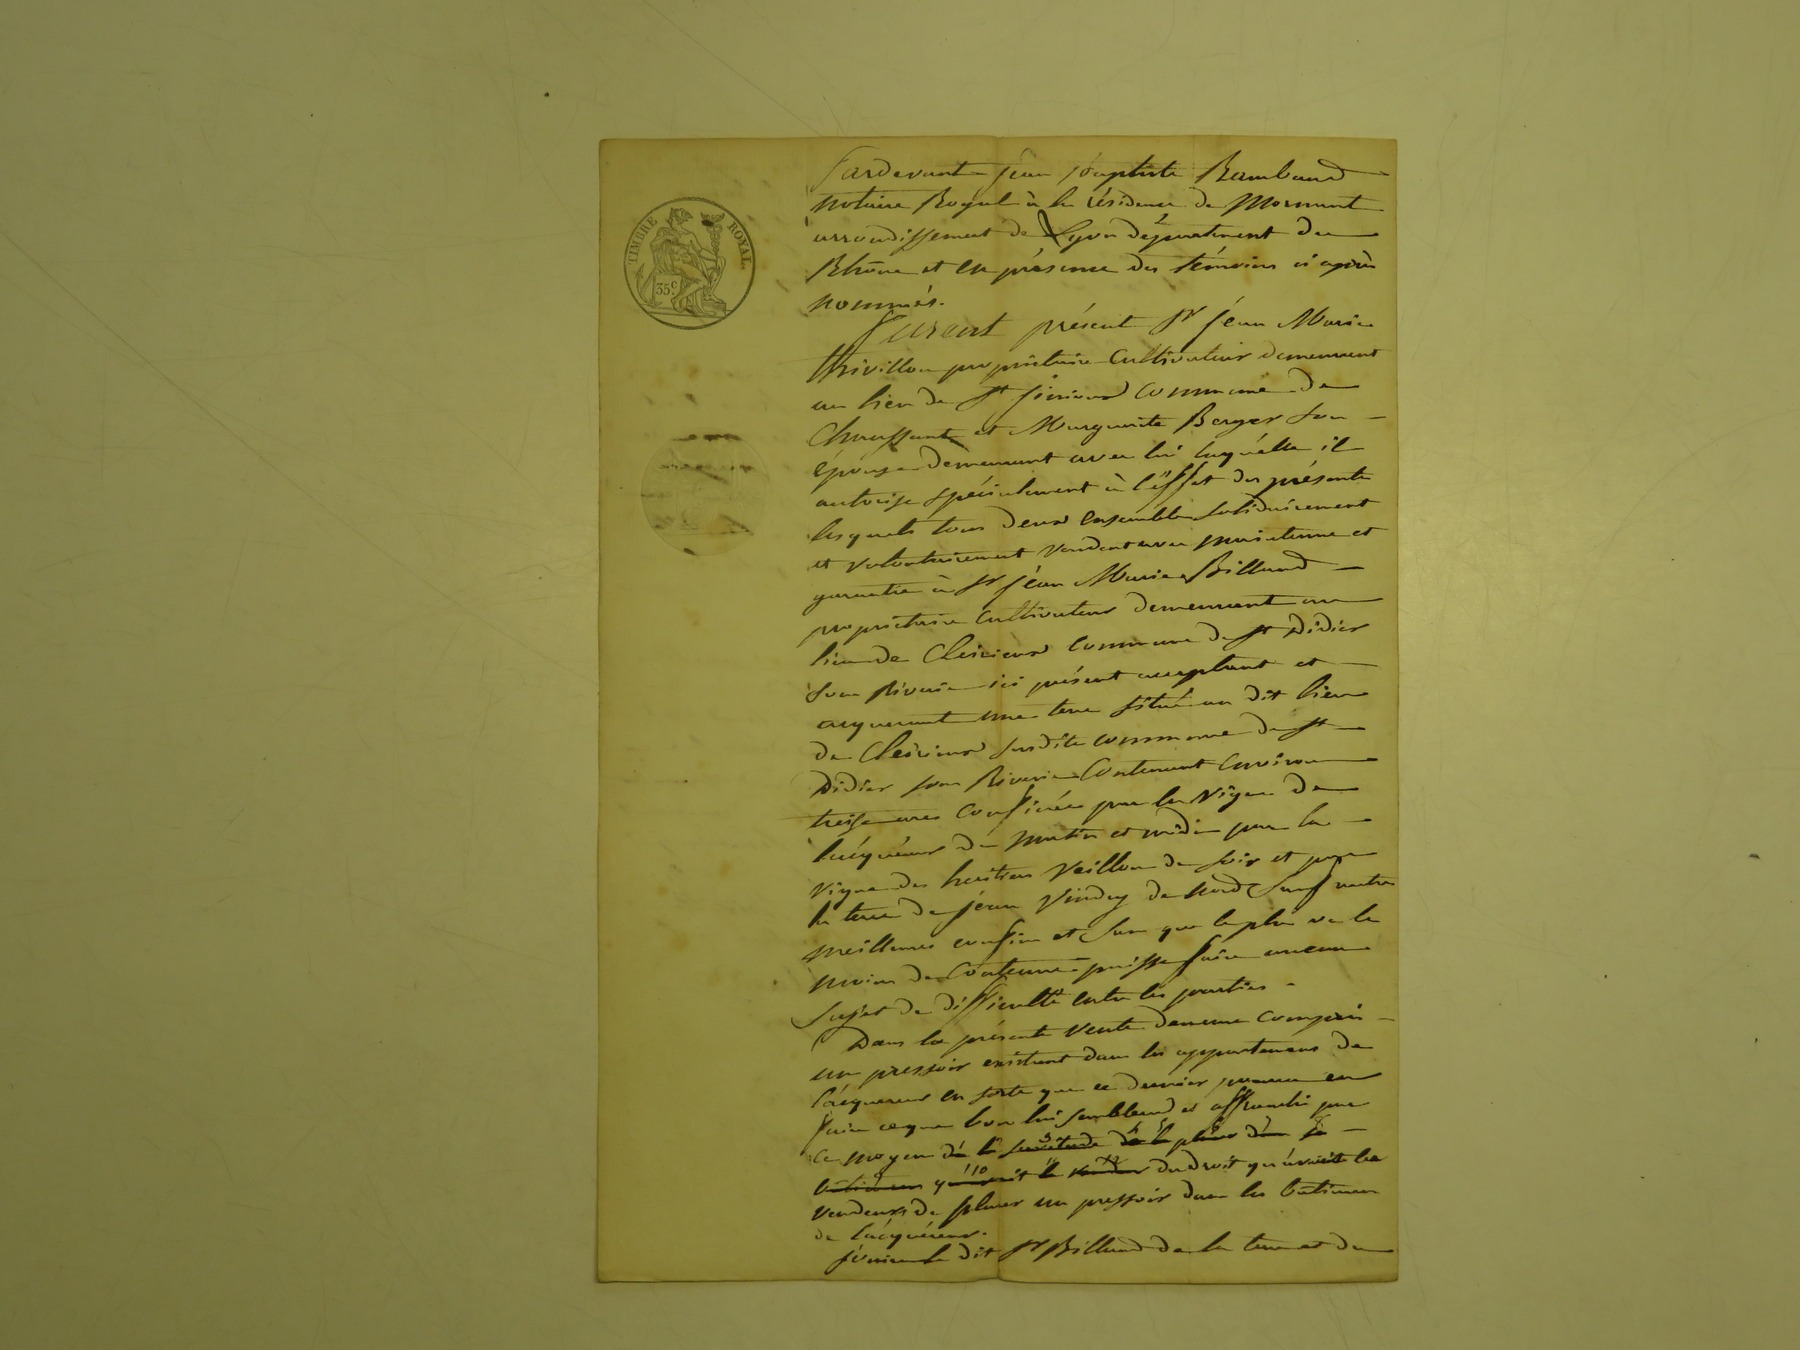 TIMBRE ROYAL.
35c
Pardevant Jean Baptiste Rambaud
notaire Royal à la résidence de Mornant
arrondissement de Lyon département du
Rhône et en présence des témoins ci après
nommés.
Furent présent Sr Jean Marie
Thivillon propriétaire cultivateur demeurant
au lieu de St commune de
Chaussant et Marguerite Berger son
épouse demeurant avec lui laquelle il
autorise spécialement à l'effet des présente
lesquels tous deux ensemble solidairement
et volontairement vendent avec maintenue et
garantie à Sr Jean Marie Billard
propriétaire cultivateur demeurant au
lieu de commune de St Didier
sous Riverie ici présent acceptant et
acquérant une terre située au dit lieu
de susdite commune de St
Didier sous Riverie contenant environ
treize ares confinée par la vigne de
lacquéreur de matin et midi par la
vigne des héritiers Veillon de soir et par
la terre de Jean Vindry de nord sauf autres
meilleures confins et sans que le plus ou le
moins de contenue puisse faire aucun
sujet de difficulté entre les parties.
Dans la présente vente demeure compris
un pressoir existant dans les appartemens de
l'acquereur en sorte que ce dernier pourra en
faire ce que bon lui semblera et affranchi par
ce moyen de la servitude de la placer dans se
batimens qu'avoit le vendeur du droit qu'avoit les
vendeurs de placer un pressoir dans les batimens
de lacquéreur.
Jouira le dit Sr Billard de la terre et du